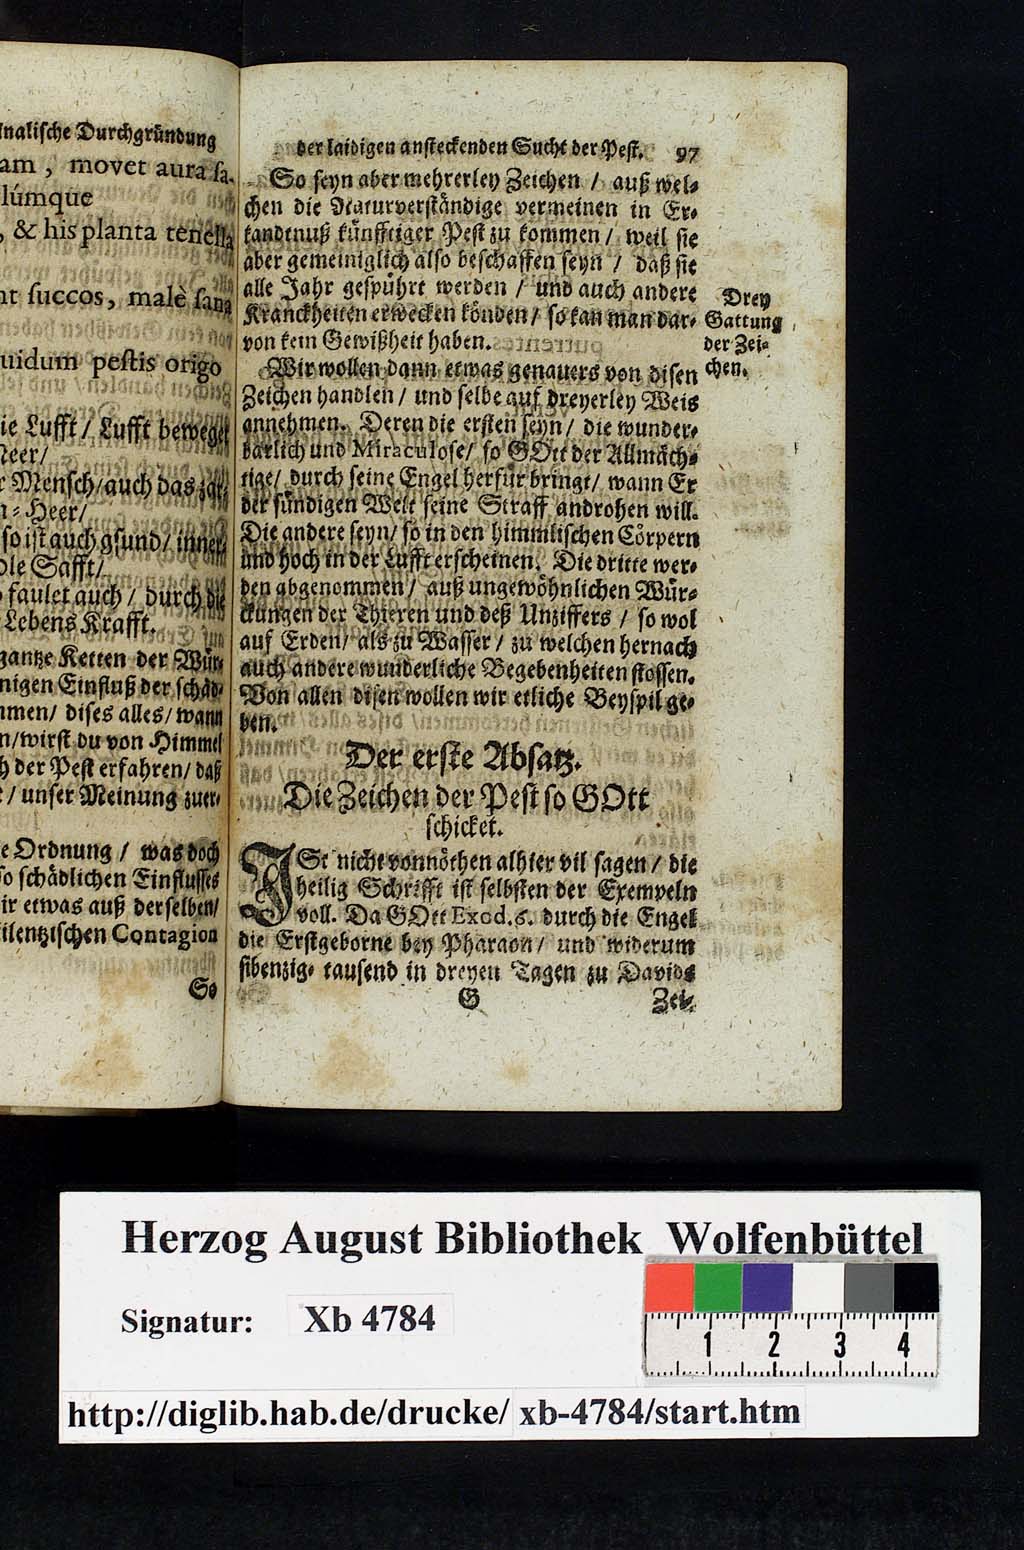 inalische Durchgründung
am, movet aura sa-
lúmque
, & his planta tenella
nt succos, malè sana
uidum pestis origo
ie Lufft/ Lufft beweget
Meer/
r Mensch/auch das
n-Heer/
so ist auch gsund/
ole Safft/
faulet auch/ durch die
Lebens Krafft.
gantze Ketten der Wür-
nigen Einfluß der schäd-
mmen/ dises alles/ wann
n/wirst du von Himmel
h der Pest erfahren/ daß
t/ unser Meinung zuer-
e Ordnung / was doch
so schädlichen Einflusses
ir etwas auß derselben/
ilentzischen Contagion
So
der laidigen ansteckenden Sucht der Pest. 97
So seyn aber mehrerley Zeichen / auß wel-
chen die Naturverständige vermeinen in Er-
kandtnuß künfftiger Pest zu kommen/ weil sie
aber gemeiniglich also beschaffen seyn / daß sie
alle Jahr gespührt werden / und auch andere
Kranckheiten erwecken könden/ so kan man dar-
von kein Gewißheit haben.
Drey
Gattung
der Zei-
chen.
Wir wollen dann etwas genauers von disen
Zeichen handlen/ und selbe auf dreyerley Weis
annehmen. Deren die ersten seyn/ die wunder-
barlich und Miraculose/ so GOtt der Allmäch-
tige/ durch seine Engel herfür bringt/ wann Er
der sündigen Welt seine Straff androhen will.
Die andere seyn/ so in den himmlischen Cörpern
und hoch in der Lufft erscheinen. Die dritte wer-
den abgenommen/ auß ungewöhnlichen Wür-
ckungen der Thieren und deß Unziffers / so wol
auf Erden/ als zu Wasser/ zu welchen hernach
auch andere wunderliche Begebenheiten stossen.
Von allen disen wollen wir etliche Beyspil ge-
ben.
Der erste Absatz.
Die Zeichen der Pest so GOtt
schicket.
ISt nicht vonnöthen alhier vil sagen/ die
heilig Schrifft ist selbsten der Exempeln
voll. Da GOtt Exod. 6. durch die Engel
die Erstgeborne bey Pharaon/ und widerum
sibenzig- tausend in dreyen Tagen zu Davids
G Zei-
Herzog August Bibliothek Wolfenbüttel
Signatur: Xb 4784
1 2 3 4
http://diglib.hab.de/drucke/ xb-4784/start.htm